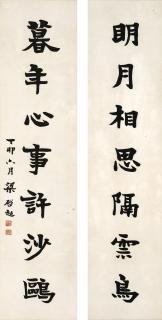 明月相思隔雲鳥
暮年心事許沙鷗
丁卯六月 梁啟超